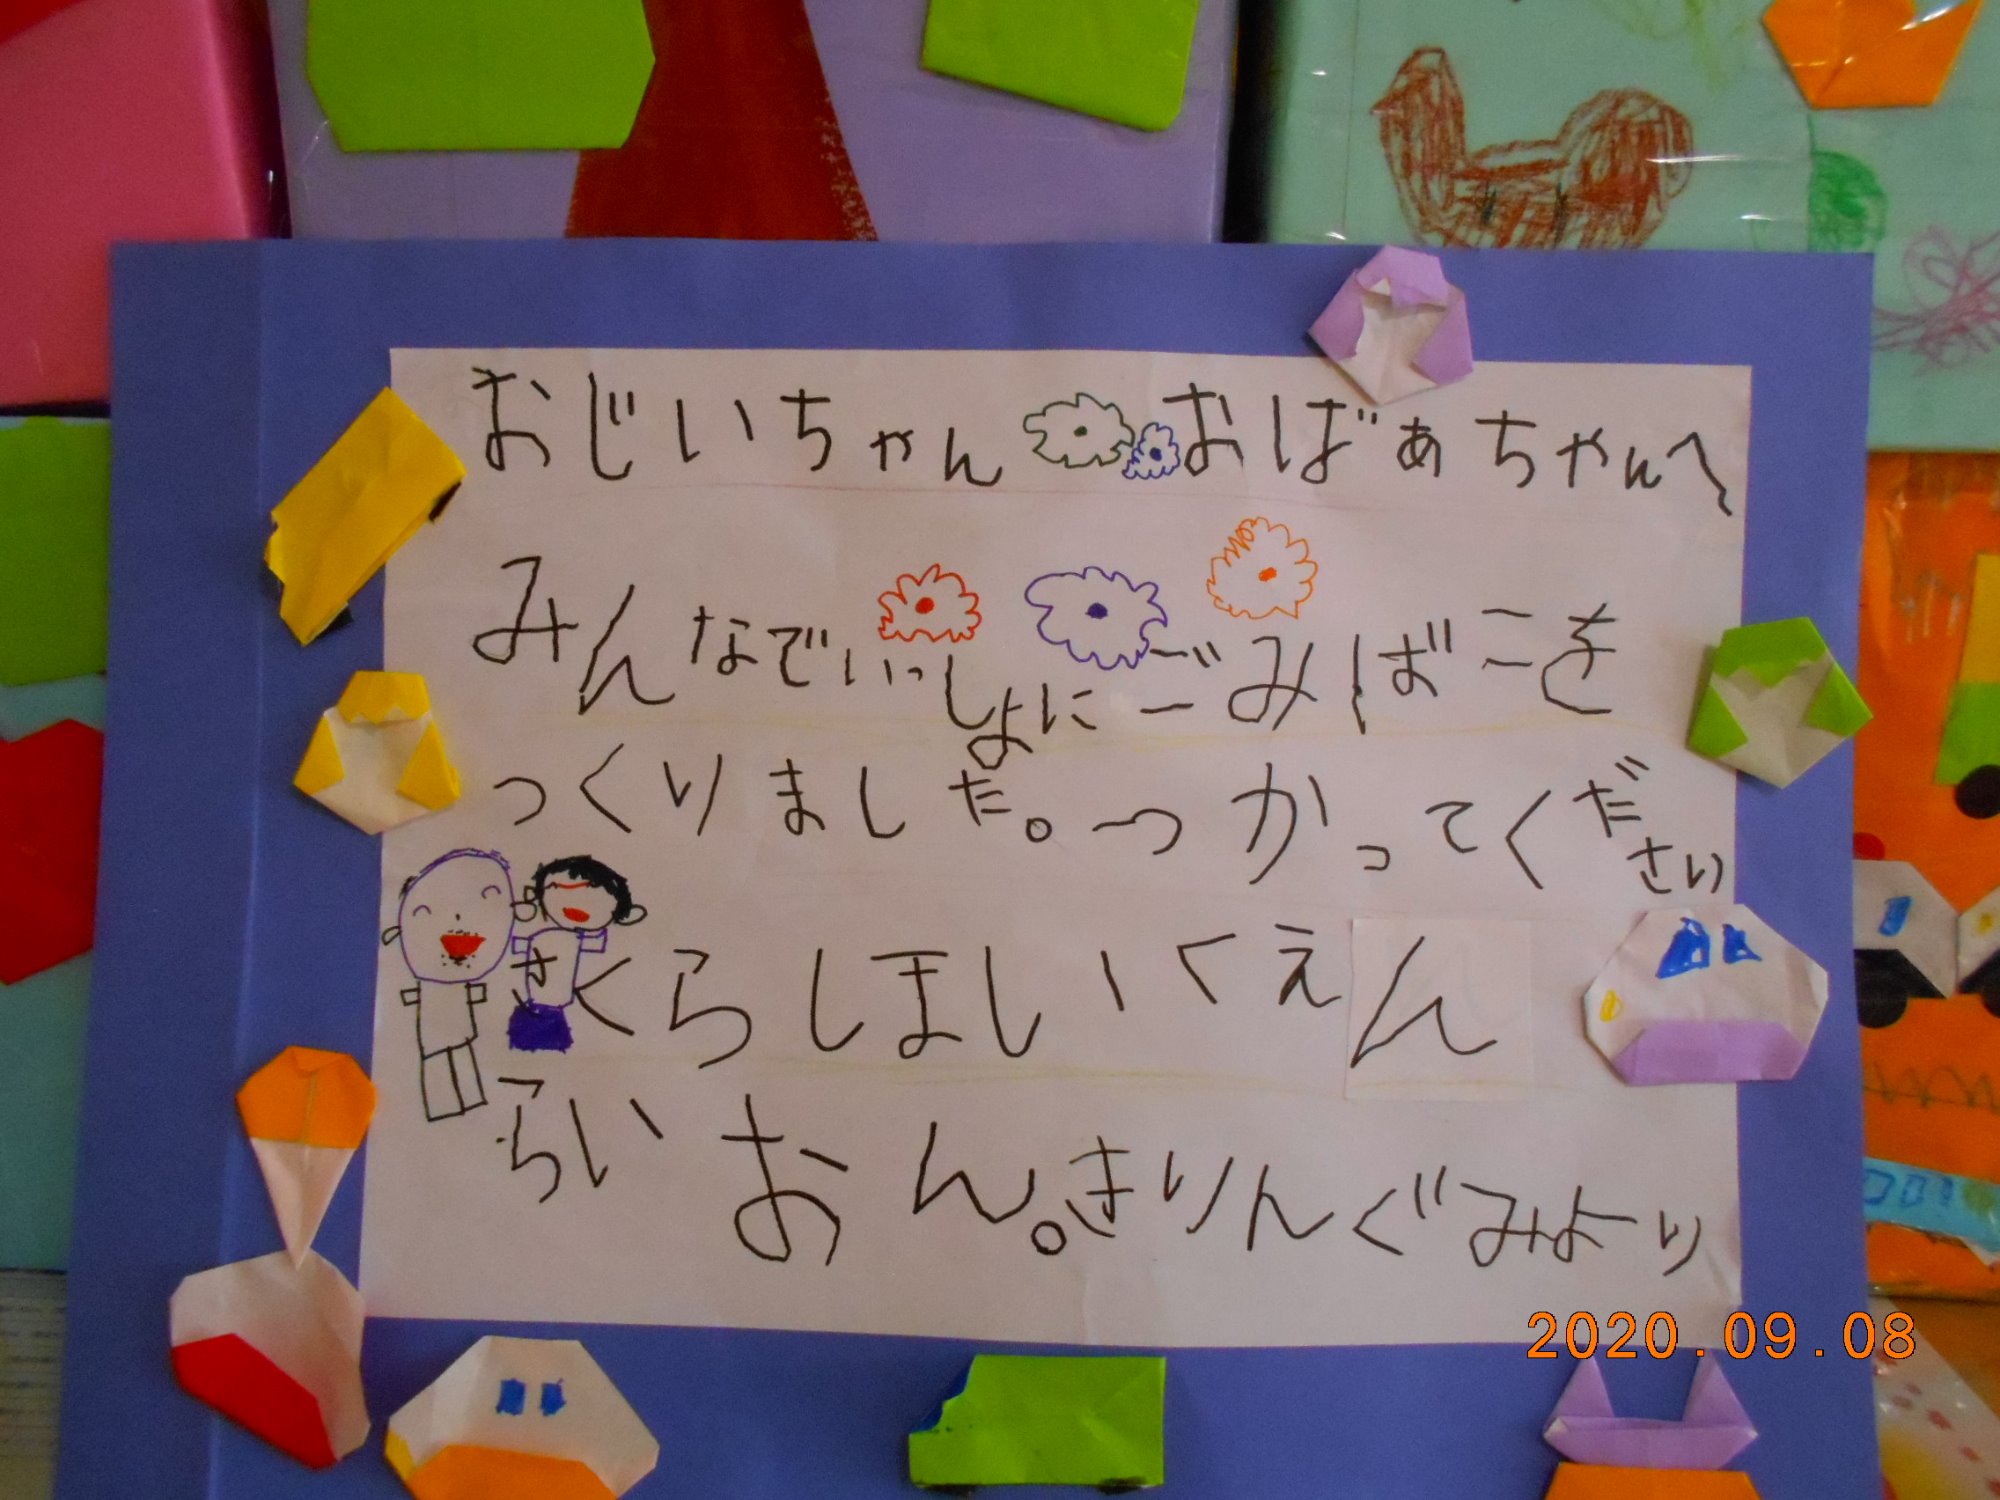 おじいちゃん おばぁちゃんへ
みんなでいっしょにごみばこを
つくりました。つかってください
さくらしほいくえん
らいおん。きりんぐみより
2020.09.08